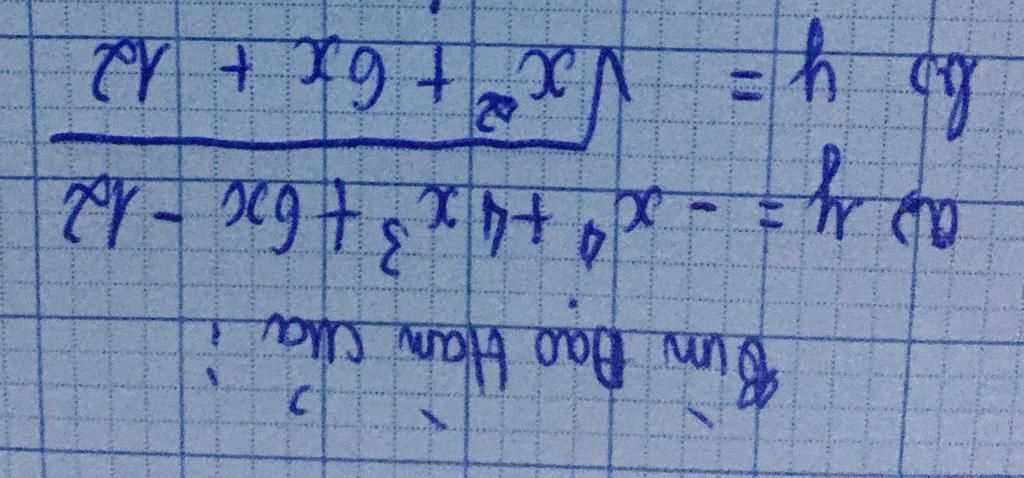 Tìm Đạo Hàm của :
a) y = - x⁴ + 4x³ + 6x - 12
b) y = √(x² + 6x + 12)